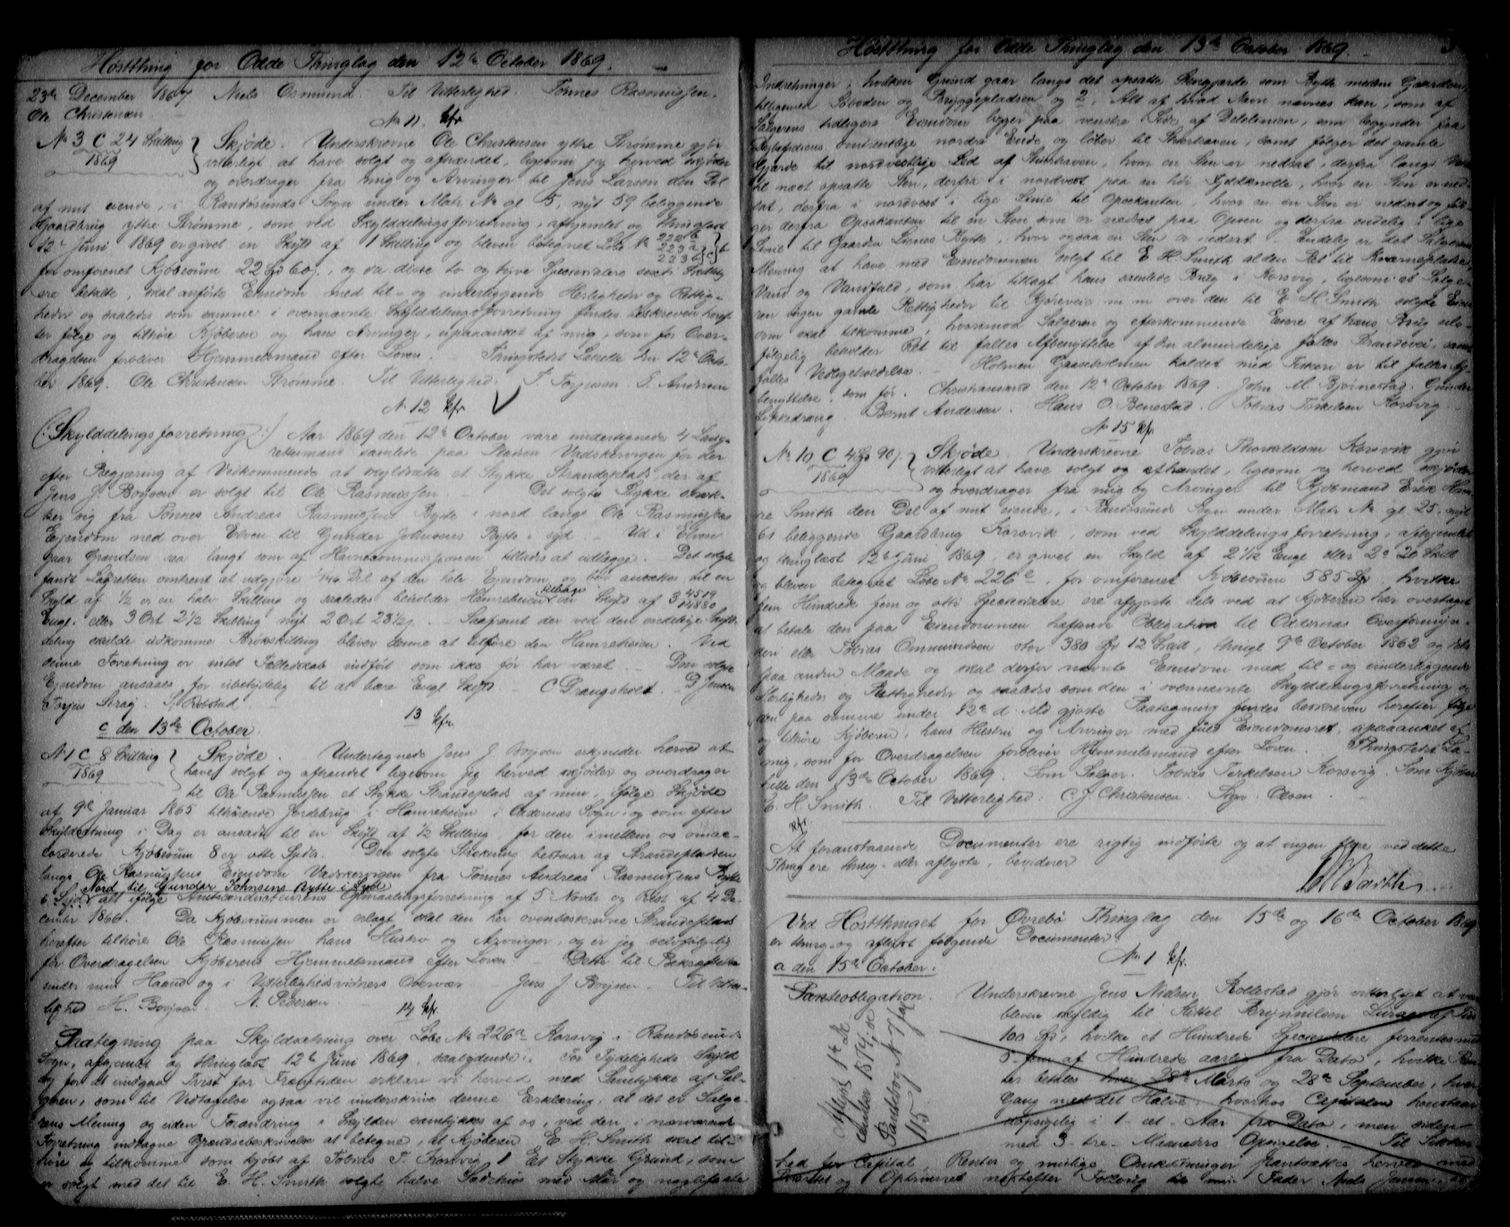 Høstthing for Odde Thinglag den 12te October 1869.
23de December 1867 Niels Osmund. Til Vitterlighed. Tønnes Rasmussen.
Ole Christensen
No 11. kfr
No 3 C 24 Skilling 1869 } Skjøde. Underskrevne Ole Christensen yttre Strømme gjør
vitterligt at have solgt og afhændet, ligesom jeg herved skjøder
og overdrager fra mig og Arvinger til Jens Larsen den Del
af mit eiende, i Randøsunds Sogn under Matr No gl 5, nyt 59 beliggende
Gaardbrug yttre Strømme, som ved Skylddelingsforretning, afhjemlet og thinglæst
12te Juni 1869 er givet en Skyld af 1 Skilling og bleven betegnet Løbe No
for omforenet Kjøbesum 22 Spd 60 s, og da disse to og tyve Speciedalere
ere betalte, skal anførte Eiendom med til- og underliggende Herligheder og Rettig-
heder og saaledes som samme i overnævnte Skylddelingsforretning findes beskreven heref-
ter følge og tilhøre Kjøberen og hans Arvinger, upaaanket af mig, som for Over-
dragelsen forbliver Hjemmelsmand efter Loven. Thingstedet Lahelle den 12te Octo-
ber 1869. Ole Christensen Strømme. Til Vitterlighed.
No 12 kfr
(: Skylddelingsforretning :) Aar 1869 den 12te October vare undertegnede 4 Laug-
rettesmænd samlede paa Pladsen Vadskervigen for der
efter Begjæring af Vedkommende at skyldsætte et Stykke Strandeplads der af
Jens J. Boysen er solgt til Ole Rasmussen. Det solgte Stykke stræk-
ker sig fra Tønnes Andreas Rasmussens Bytte i nord langs Ole Rasmussens
Eiendom ned over Elven til Gunder Johnsens Bytte i syd. Ud i Elven
gaar Grændsen saa langt som af Havnecommissionen tillades at udlægge. Det solgte
fandt Lagretten omtrent at udgjøre Del af den hele Eiendom og blev ansat til en
Skyld af 1/2 er en halv Skilling og saaledes beholder Hamreheien tilbage en Skyld af 3 4519/14880
Engl. eller 3 Ort 2 1/2 Skilling nyt 2 Ort 23 1/2 s.
denne Forretning er intet Fællesskab indført som ikke før har været. Den solgte
Eiendom ansaaes for ubetydelig til at bære Engl Skyld. C Drangsholt. D Jensen
13 kfr.
c den 13de October
No 1 C 8 Skilling 1869 } Skjøde. Undertegnede Jens J Boysen erkjender herved at
have solgt og afhændet ligesom jeg herved skjøder og overdrager
til Ole Rasmussen et Stykke Strandeplads af min, ifølge Skjøde
af 9de Januar 1865 tilhørende Jordebrug i Hamreheien i Oddernes Sogn, og som efter
Skyldsætning i Dag er ansat til en Skyld af 1/2 Skilling, for den imellem os omac-
corderede Kjøbesum 8 er otte Spdr. Den solgte Strækning bestaar af Strandepladsen
langs Ole Rasmussens Eiendom Vadskervigen fra Tønnes Andreas Rasmussens Bytte
i Nord til Gunder Johnsens Bytte i Syd
cember 1866. Da Kjøbesummen er erlagt skal den her ovenbeskrevne Strandeplads
herefter tilhøre Ole Rasmussen hans Hustru og Arvinger, og er jeg selvfølgelig
for Overdragelsen Kjøberens Hjemmelsmand efter Loven. Dette til Bekræftelse
under min Haand og i Vitterlighedsvidners Overvær. Jens J Boysen. Til Vitter-
lighed H. Boysen. A. Pedersen.
14 kfr.
Paategning paa Skyldsætning over Løbe No 226a Korsvig i Randøsunds
Sogn, afhjemlet og thinglæst 12te Juni 1869, saalydende: For Tydeligheds Skyld
og for at undgaa Tvist for Fremtiden erklære vi herved, med Samtykke af Sæl-
geren, som til Vedtagelse ogsaa vil underskrive denne Erklæring, at det er Sælge-
rens Mening og uden Forandring i Skylden samtykkes af os, ved den i nærværende
Forretning indtagne Grændsebeskrivelse at betegne, at Kjøberen E. H. Smith skal til-
høre og tilkomme som kjøbt af Tobias T. Korsvig, 1 Et Stykke Grund, som
er solgt med det til E. H. Smith solgte halve Søebhus med Alt og naglefaste
Høstthing for Odde Thinglag den 13de October 1869.
Indretninger, hvilken Grund gaar langs det opsatte Steengjærde som Bytte mellem Gaarden,
tilligemed Boden og Bryggepladsen, og 2. Alt af hvad Navn nævnes kan, som af
Sælgerens tidligere Eiendom ligger paa venstre Side af Delelinien, som begynder fra
Gjerde til nordvestlige Led af Storhaven, hvor en Sten er nedsat, derfra langs
til næst opsatte Sten, derfra i nordvest paa en høi Fjeldknolle, hvor en Sten er ned-
sat, derfra i nordvest i lige Linie til Opsekanten, hvor en Sten er nedsat
ger derfra Opsekanten til en Sten som er nedsat paa Opsen og derfra endelig i lige
Linie til Gaarden Lianes Bytte, hvor ogsaa en Sten er nedsat. Endelig er det Sælgerens
Mening at have med Eiendommen solgt til E H Smith al den Ret til Kværneplads,
Vand og Vandfald, som har tillagt hans samlede Brug i Korsvig, ligesom og Sælge-
ren ingen gamle Rettigheder til Kjørevei m m over den til E. H. Smith solgte Eien-
dom skal tilkomme, hvorimod Sælgeren og efterkommende Eiere af hans Brug selv-
følgelig beholder Ret til fælles Afbenyttelse af den almindelige fælles Strandevei samt
fælles Vedligeholdelse. Holmen Gaaseholmen kaldet med Fiskeri er til fælles Af-
benyttelse, som før. Christiansand den 12te October 1869. John M. Bjørnestad. Gunder
Bernt Andersen. Hans O. Benestad. Tobias Terkelsen Korsvig.
No 15 kfr.
No 10 C 4 Spd 90 s. 1869 } Skjøde. Underskrevne Tobias Thorkeldsen Korsvik gjør
vitterligt at have solgt og afhændet, ligesom jeg herved skjøder
og overdrager fra mig og Arvinger til Kjøbmand Erik Ham-
re Smith den Del af mit eiende, i Randøsunds Sogn under Matr No gl 25, nyt
61 beliggende Gaardbrug Korsvik, som ved Skylddelingsforretning, afhjemlet
og thinglæst 12te Juni 1869, er givet en Skyld af 2 1/2 Engl eller 2 Ort 20 Skill
og bleven betegnet Løbe No 226a, for omforenet Kjøbesum 585 Spd, hvilke
fem Hundrede fem og otti Speciedalere ere afgjorte dels ved at Kjøberen har overtaget
at betale den paa Eiendommen hæftende Obligation til Oddernes Overformyn-
deri eller Thores Ommundsen stor 380 Spd 12 Skill, thingl 9de October 1862 og dels
paa anden Maade og skal derfor nævnte Eiendom med til- og underliggende
Herligheder og Rettigheder og saaledes som den i overnævnte Skylddelingsforretning og
den paa samme under 12te d. Md gjorte Paategning findes beskreven herefter følge
og tilhøre Kjøberen, hans Hustru og Arvinger med fuld Eiendomsret, upaaanket af
mig, som for Overdragelsen forbliver Hjemmelsmand efter Loven. Thingstedet La-
helle den 13de October 1869. Som Sælger. Tobias Terkelsen Korsvig. Som Kjøber
E. H. Smith. Til Vitterlighed: C. J. Christensen. Sign. Olsen.
kfr
At foranstaaende Documenter ere rigtig indførte og at ingen flere ved dette
Thing ere thingl. eller aflyste, bevidner
Ved Høstthinget for Øvrebø Thinglag den 15de og 16de October 1869
er thingl. og aflæst følgende Documenter:
a den 15de October.
No 1 kfr.
Panteobligation. Underskrevne Jens Nielsen Rollestad gjør vitterligt at være
bleven skyldig til Kittel Brynnilsen
100 Spd, hvilke et Hundrede Speciedalere forrentes med
5 fem af Hundrede aarlig fra Dato, hvilke Ren-
ter betales hver 28de Marts og 28de September, hver
Gang med det Halve; hvorhos Capitalen henstaar
uopsigelig i 1 et Aar fra Dato, men siden
med 3 tre Maaneders Opsigelse. Til Sikker-
hed for Capital, Renter og mulige Omkostninger pantsættes herved med
Afløst 1ste
Pantebog N 7 fol
115